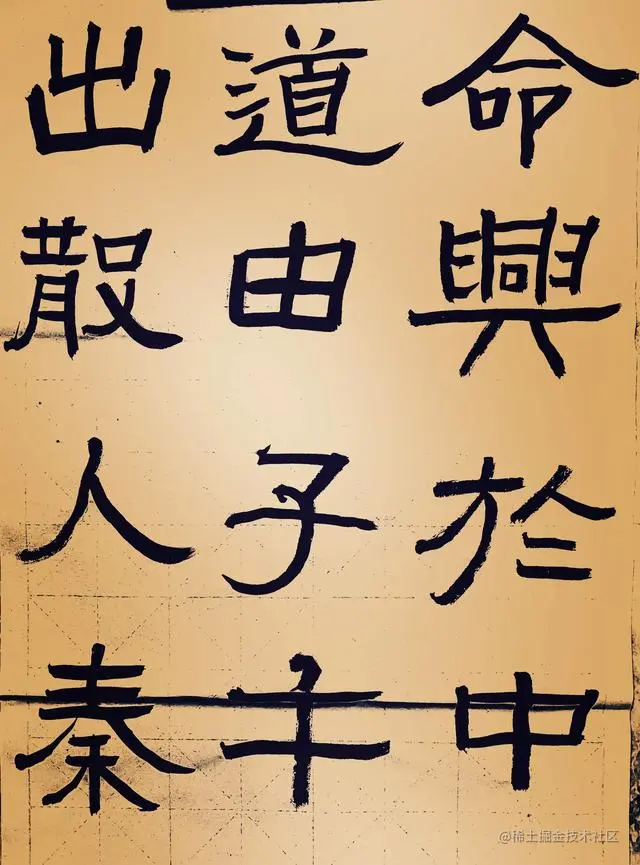 命興於中
道由子午
出散人秦
@稀土掘金技术社区